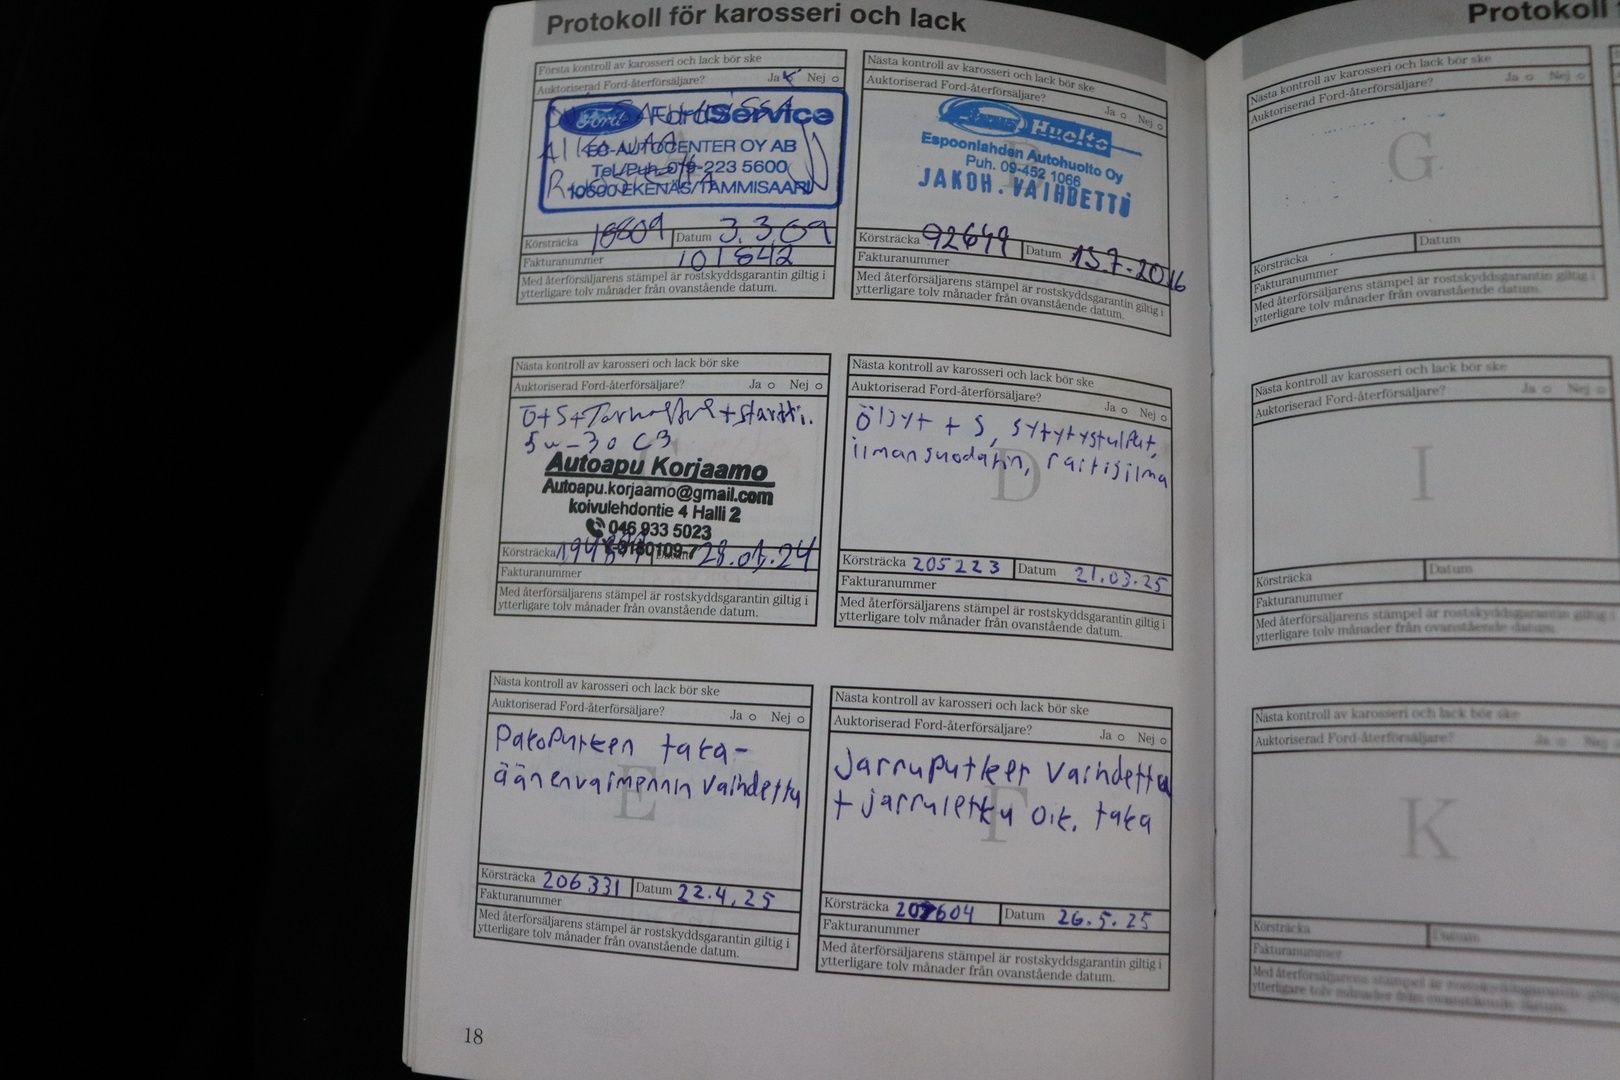 Protokoll för karosseri och lack
Första kontroll av karosseri och lack bör ske
Auktoriserad Ford-återförsäljare? Ja Nej
Ford FordService
EO-AUTOCENTER OY AB
Tel./Puh. 019-223 5600
10600 EKENÄS/TAMMISAARI
Körsträcka 18809 Datum 3.3 09
Fakturanummer 101842
Med återförsäljarens stämpel är rostskyddsgarantin giltig i
ytterligare tolv månader från ovanstående datum.
Nästa kontroll av karosseri och lack bör ske
Auktoriserad Ford-återförsäljare?
Ja Nej
Huolto
Espoonlahden Autohuolto Oy
Puh. 09-452 1066
JAKOH. VAIHDETTU
Körsträcka 92649 Datum 15.7.2016
Fakturanummer
Med återförsäljarens stämpel är rostskyddsgarantin giltig i
ytterligare tolv månader från ovanstående datum.
Nästa kontroll av karosseri och lack bör ske
Auktoriserad Ford-återförsäljare? Ja Nej
Ö+S+ +startti.
5w-30 C3
Autoapu Korjaamo
Autoapu.korjaamo@gmail.com
koivulehdontie 4 Halli 2
046 933 5023
Körsträcka Datum
Fakturanummer
Med återförsäljarens stämpel är rostskyddsgarantin giltig i
ytterligare tolv månader från ovanstående datum.
Nästa kontroll av karosseri och lack bör ske
Auktoriserad Ford-återförsäljare?
Ja Nej
Öljyt + S, sytytystulPat,
ilmansuodatin, raitisilma
D
Körsträcka 205223 Datum 21.03.25
Fakturanummer
Med återförsäljarens stämpel är rostskyddsgarantin giltig i
ytterligare tolv månader från ovanstående datum.
Nästa kontroll av karosseri och lack bör ske
Auktoriserad Ford-återförsäljare?
Ja Nej
PakoPutken taka-
äänenvaimennin vaihdettu
E
Körsträcka 206331 Datum 22.4.25
Fakturanummer
Med återförsäljarens stämpel är rostskyddsgarantin giltig i
ytterligare tolv månader från ovanstående datum.
Nästa kontroll av karosseri och lack bör ske
Auktoriserad Ford-återförsäljare?
Ja Nej
JarruPutket vaihdettu
+ jarruletku oik. taka
F
Körsträcka 207604 Datum 26.5.25
Fakturanummer
Med återförsäljarens stämpel är rostskyddsgarantin giltig i
ytterligare tolv månader från ovanstående datum.
18
Protokoll
Nästa kontroll av karosseri och lack bör ske
Auktoriserad Ford-återförsäljare? Ja Nej
G
Körsträcka Datum
Fakturanummer
Med återförsäljarens stämpel är rostskyddsgarantin giltig i
ytterligare tolv månader från ovanstående datum.
Nästa kontroll av karosseri och lack bör ske
Auktoriserad Ford-återförsäljare? Ja Nej
I
Körsträcka Datum
Fakturanummer
Med återförsäljarens stämpel är rostskyddsgarantin giltig i
ytterligare tolv månader från ovanstående datum.
Nästa kontroll av karosseri och lack bör ske
Auktoriserad Ford-återförsäljare? Ja Nej
K
Körsträcka Datum
Fakturanummer
Med återförsäljarens stämpel är rostskyddsgarantin giltig
ytterligare tolv månader från ovanstående datum.